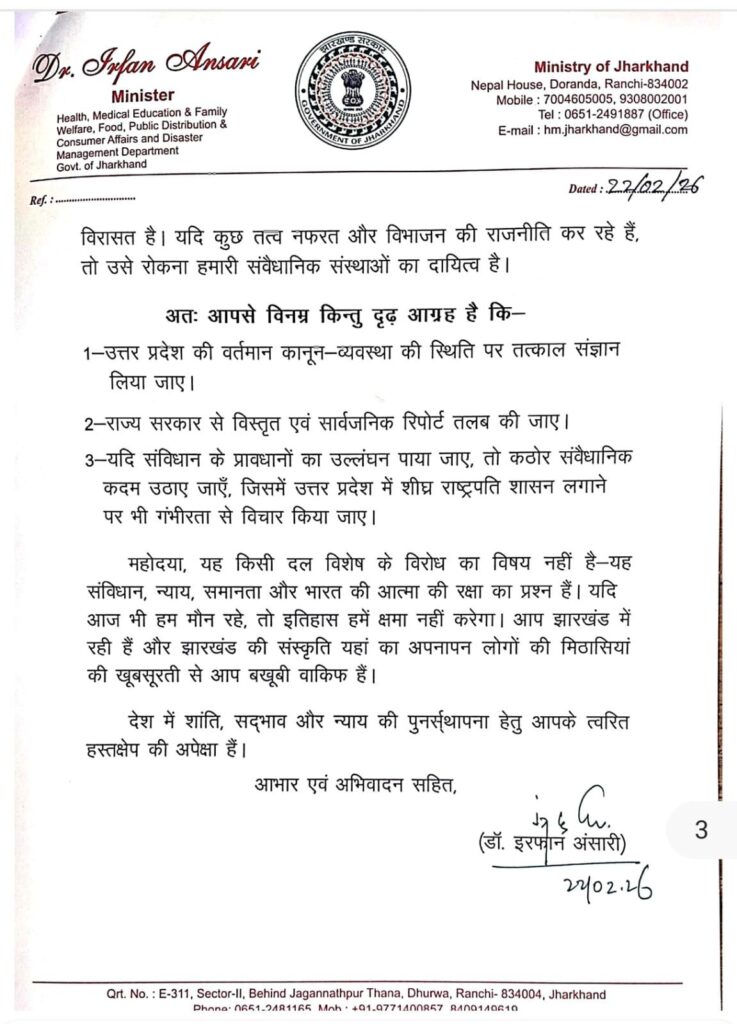 Dr. Irfan Ansari
Minister
Health, Medical Education & Family
Welfare, Food, Public Distribution &
Consumer Affairs and Disaster
Management Department
Govt. of Jharkhand
झारखण्ड सरकार
GOVERNMENT OF JHARKHAND
Ministry of Jharkhand
Nepal House, Doranda, Ranchi-834002
Mobile : 7004605005, 9308002001
Tel : 0651-2491887 (Office)
E-mail : hm.jharkhand@gmail.com
Ref. :..............................
Dated : 22/02/26
विरासत है। यदि कुछ तत्व नफरत और विभाजन की राजनीति कर रहे हैं,
तो उसे रोकना हमारी संवैधानिक संस्थाओं का दायित्व है।
अतः आपसे विनम्र किन्तु दृढ़ आग्रह है कि–
1–उत्तर प्रदेश की वर्तमान कानून–व्यवस्था की स्थिति पर तत्काल संज्ञान
लिया जाए।
2–राज्य सरकार से विस्तृत एवं सार्वजनिक रिपोर्ट तलब की जाए।
3–यदि संविधान के प्रावधानों का उल्लंघन पाया जाए, तो कठोर संवैधानिक
कदम उठाए जाएँ, जिसमें उत्तर प्रदेश में शीघ्र राष्ट्रपति शासन लगाने
पर भी गंभीरता से विचार किया जाए।
महोदया, यह किसी दल विशेष के विरोध का विषय नहीं है–यह
संविधान, न्याय, समानता और भारत की आत्मा की रक्षा का प्रश्न हैं। यदि
आज भी हम मौन रहे, तो इतिहास हमें क्षमा नहीं करेगा। आप झारखंड में
रही हैं और झारखंड की संस्कृति यहां का अपनापन लोगों की मिठासियां
की खूबसूरती से आप बखूबी वाकिफ हैं।
देश में शांति, सद्‌भाव और न्याय की पुनर्स्थापना हेतु आपके त्वरित
हस्तक्षेप की अपेक्षा हैं।
आभार एवं अभिवादन सहित,
(डॉ. इरफान अंसारी)
22/02.26
3
Qrt. No. : E-311, Sector-II, Behind Jagannathpur Thana, Dhurwa, Ranchi- 834004, Jharkhand
Phone: 0651-2481165, Mob : +91-9771400857, 8409149619